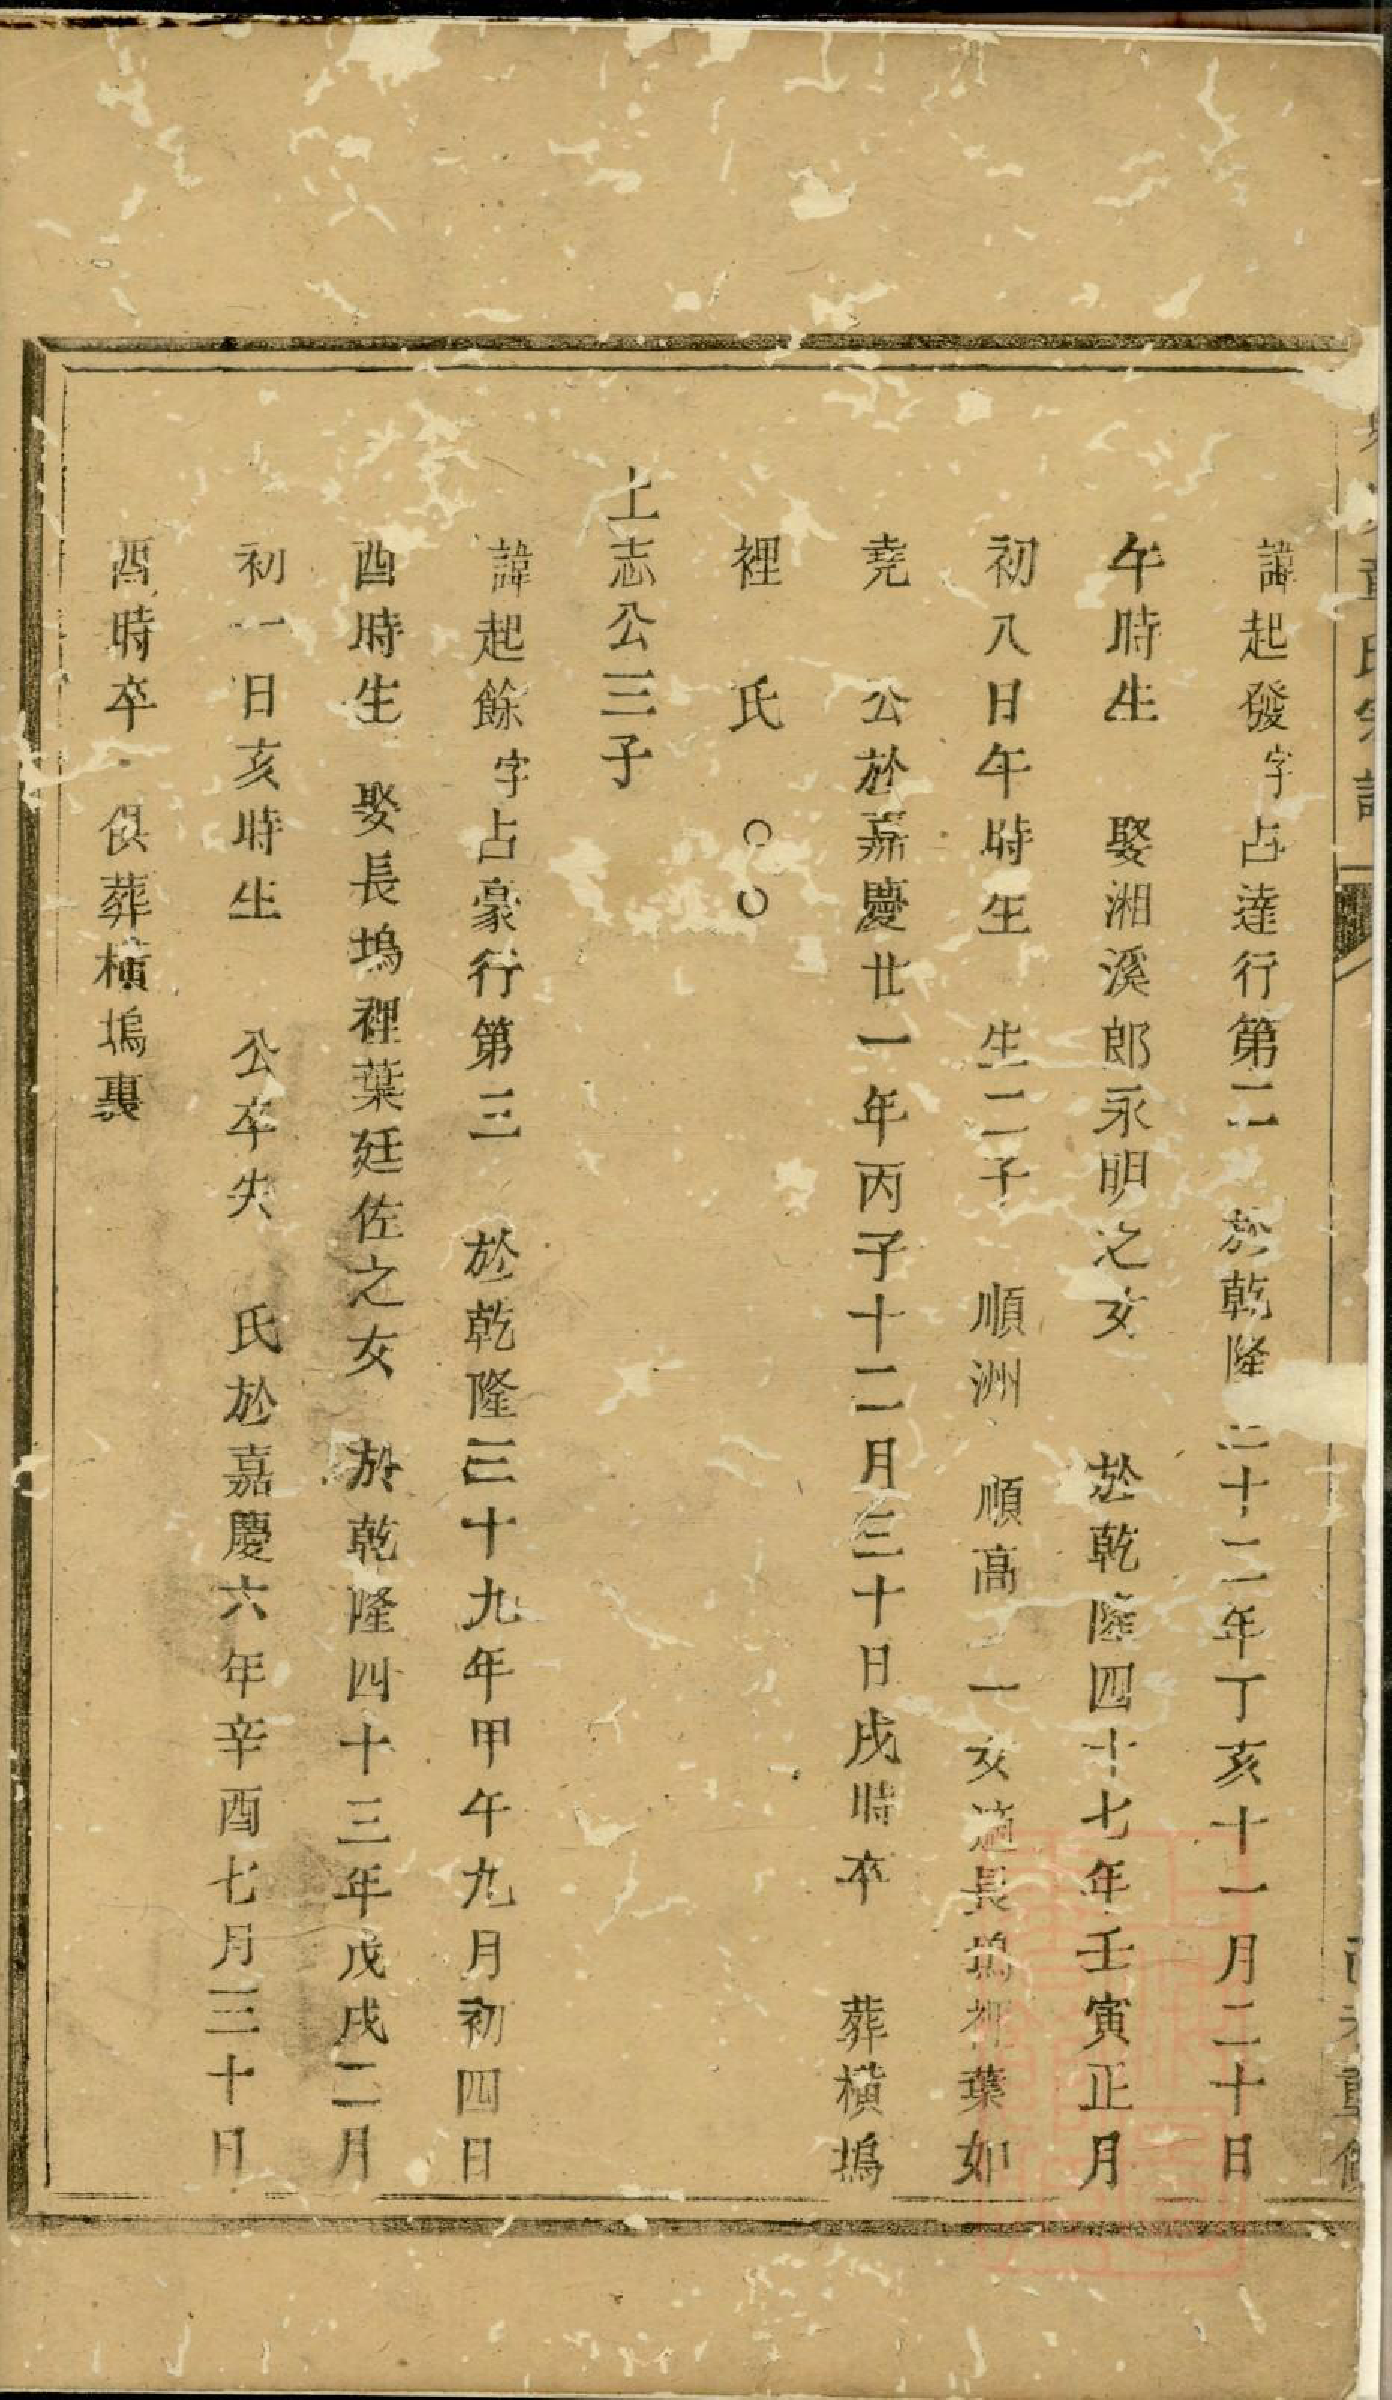 諱起發字占達行第二　於乾隆三十二年丁亥十一月二十日
午時生　娶湘溪郎永明之女　於乾隆四十七年壬寅正月
初八日午時生　生二子　順洲　順高　一女適長塢裡葉如
堯　公於嘉慶廿一年丙子十二月三十日戌時卒　葬橫塢
裡　氏　○○
上志公三子
諱起餘字占豪行第三　於乾隆三十九年甲午九月初四日
酉時生　娶長塢裡葉廷佐之女　於乾隆四十三年戊戌二月
初一日亥時生　公卒失　氏於嘉慶六年辛酉七月三十日
酉時卒　俱葬橫塢裏